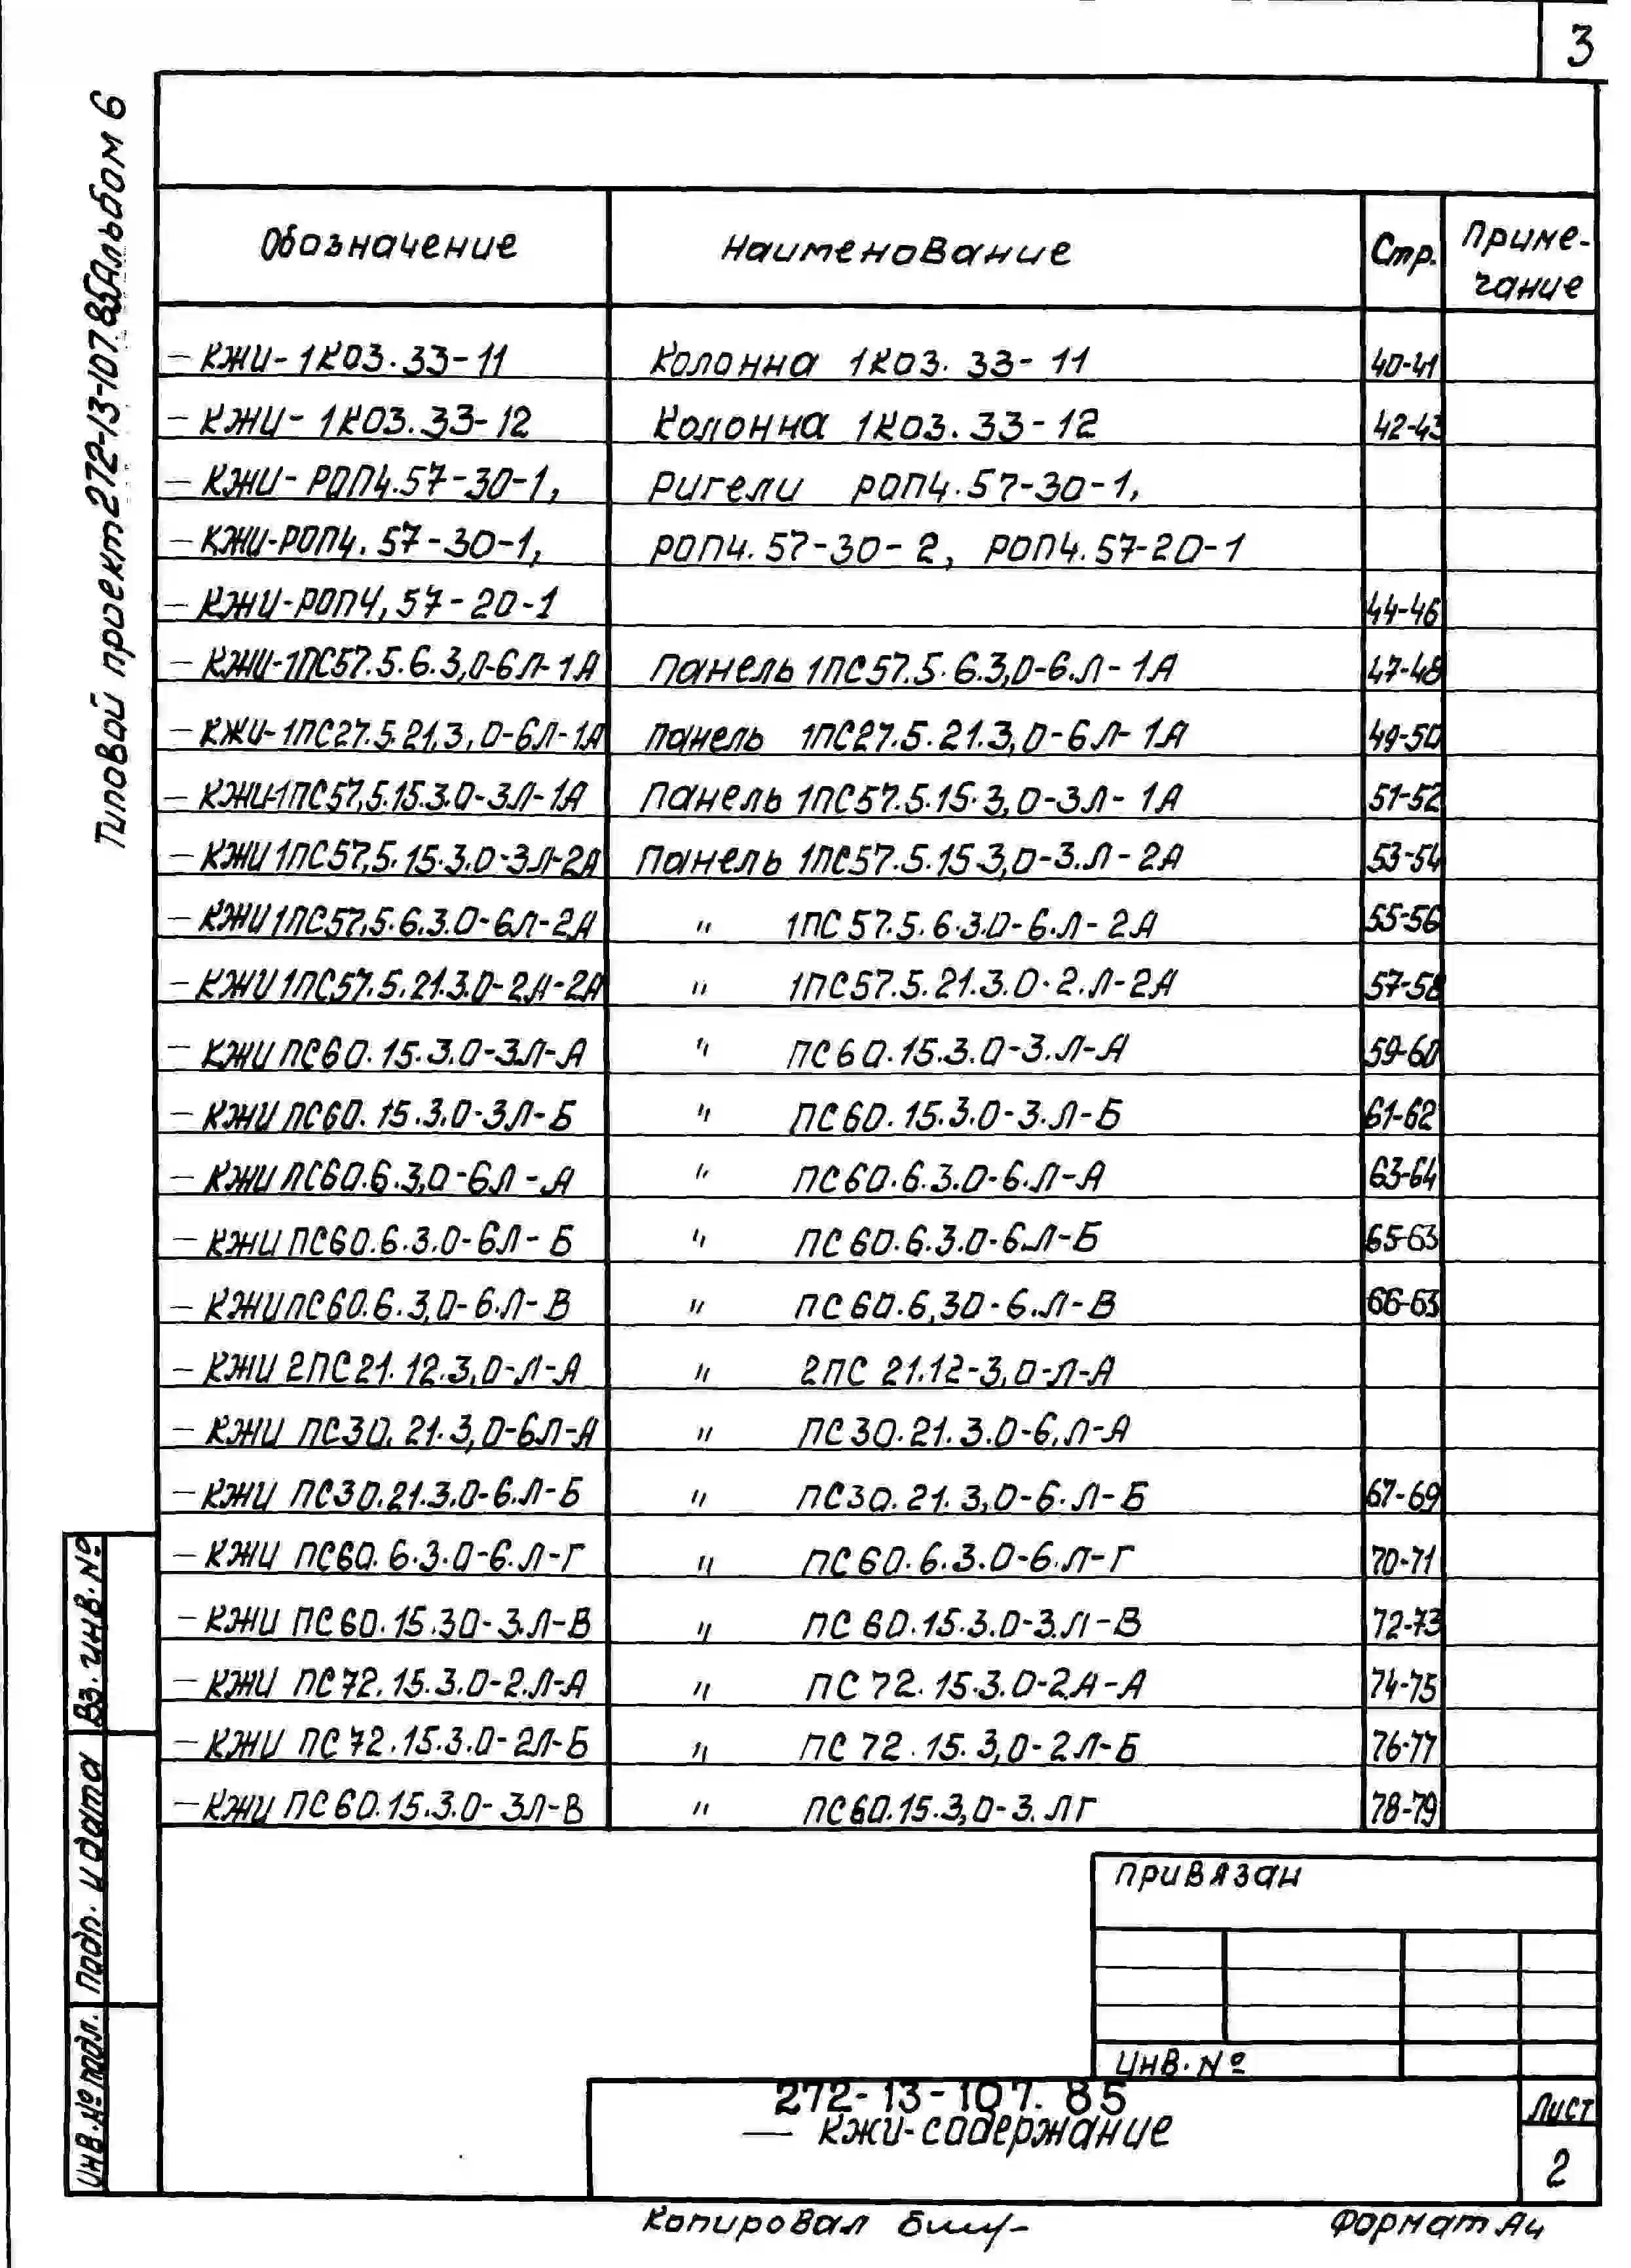 3
Типовой проект 272-13-107.85 Альбом 6
Обозначение Наименование Стр. Приме-
чание
– КЖИ-1К03.33-11 Колонна 1К03.33-11 40-41
– КЖИ-1К03.33-12 Колонна 1К03.33-12 42-43
– КЖИ-РОП4.57-30-1, Ригели РОП4.57-30-1,
– КЖИ-РОП4.57-30-1, РОП4.57-30-2, РОП4.57-20-1
– КЖИ-РОП4,57-20-1 44-46
– КЖИ-1ПС57.5.6.3,0-6Л-1А Панель 1ПС57.5.6.3,0-6.Л-1А 47-48
– КЖИ-1ПС27.5.21.3,0-6Л-1А Панель 1ПС27.5.21.3,0-6Л-1А 49-50
– КЖИ-1ПС57,5.15.3.0-3Л-1А Панель 1ПС57.5.15.3,0-3Л-1А 51-52
– КЖИ1ПС57,5.15.3.0-3Л-2А Панель 1ПС57.5.15 3,0-3.Л-2А 53-54
– КЖИ1ПС57,5.6.3.0-6Л-2А " 1ПС57.5.6.3.0-6.Л-2А 55-56
– КЖИ1ПС57.5.21.3.0-2Л-2А " 1ПС57.5.21.3.0-2.Л-2А 57-58
– КЖИПС60.15.3.0-3Л-А " ПС60.15.3.0-3.Л-А 59-60
– КЖИПС60.15.3.0-3Л-Б " ПС60.15.3.0-3.Л-Б 61-62
– КЖИПС60.6.3,0-6Л-А " ПС60.6.3.0-6.Л-А 63-64
– КЖИПС60.6.3.0-6Л-Б " ПС60.6.3.0-6.Л-Б 65-63
– КЖИПС60.6.3,0-6.Л-В " ПС60.6,30-6.Л-В 66-63
– КЖИ 2ПС21.12.3,0-Л-А " 2ПС 21.12-3,0-Л-А
– КЖИ ПС30.21.3,0-6Л-А " ПС30.21.3.0-6.Л-А
– КЖИ ПС30.21.3.0-6.Л-Б " ПС30.21.3,0-6.Л-Б 67-69
– КЖИ ПС60.6.3.0-6.Л-Г " ПС60.6.3.0-6.Л-Г 70-71
– КЖИ ПС60.15.30-3.Л-В " ПС 60.15.3.0-3.Л-В 72-73
– КЖИ ПС72.15.3.0-2.Л-А " ПС 72.15.3.0-2.А-А 74-75
– КЖИ ПС72.15.3.0-2Л-Б " ПС 72.15.3,0-2Л-Б 76-77
– КЖИ ПС60.15.3.0-3Л-В " ПС60.15.3,0-3.ЛГ 78-79
Вз. инв. №
Подп. и дата
Инв. № подл.
Привязан
Инв. №
272-13-107.85
— КЖИ-содержание
Лист
2
Копировал
Формат А4